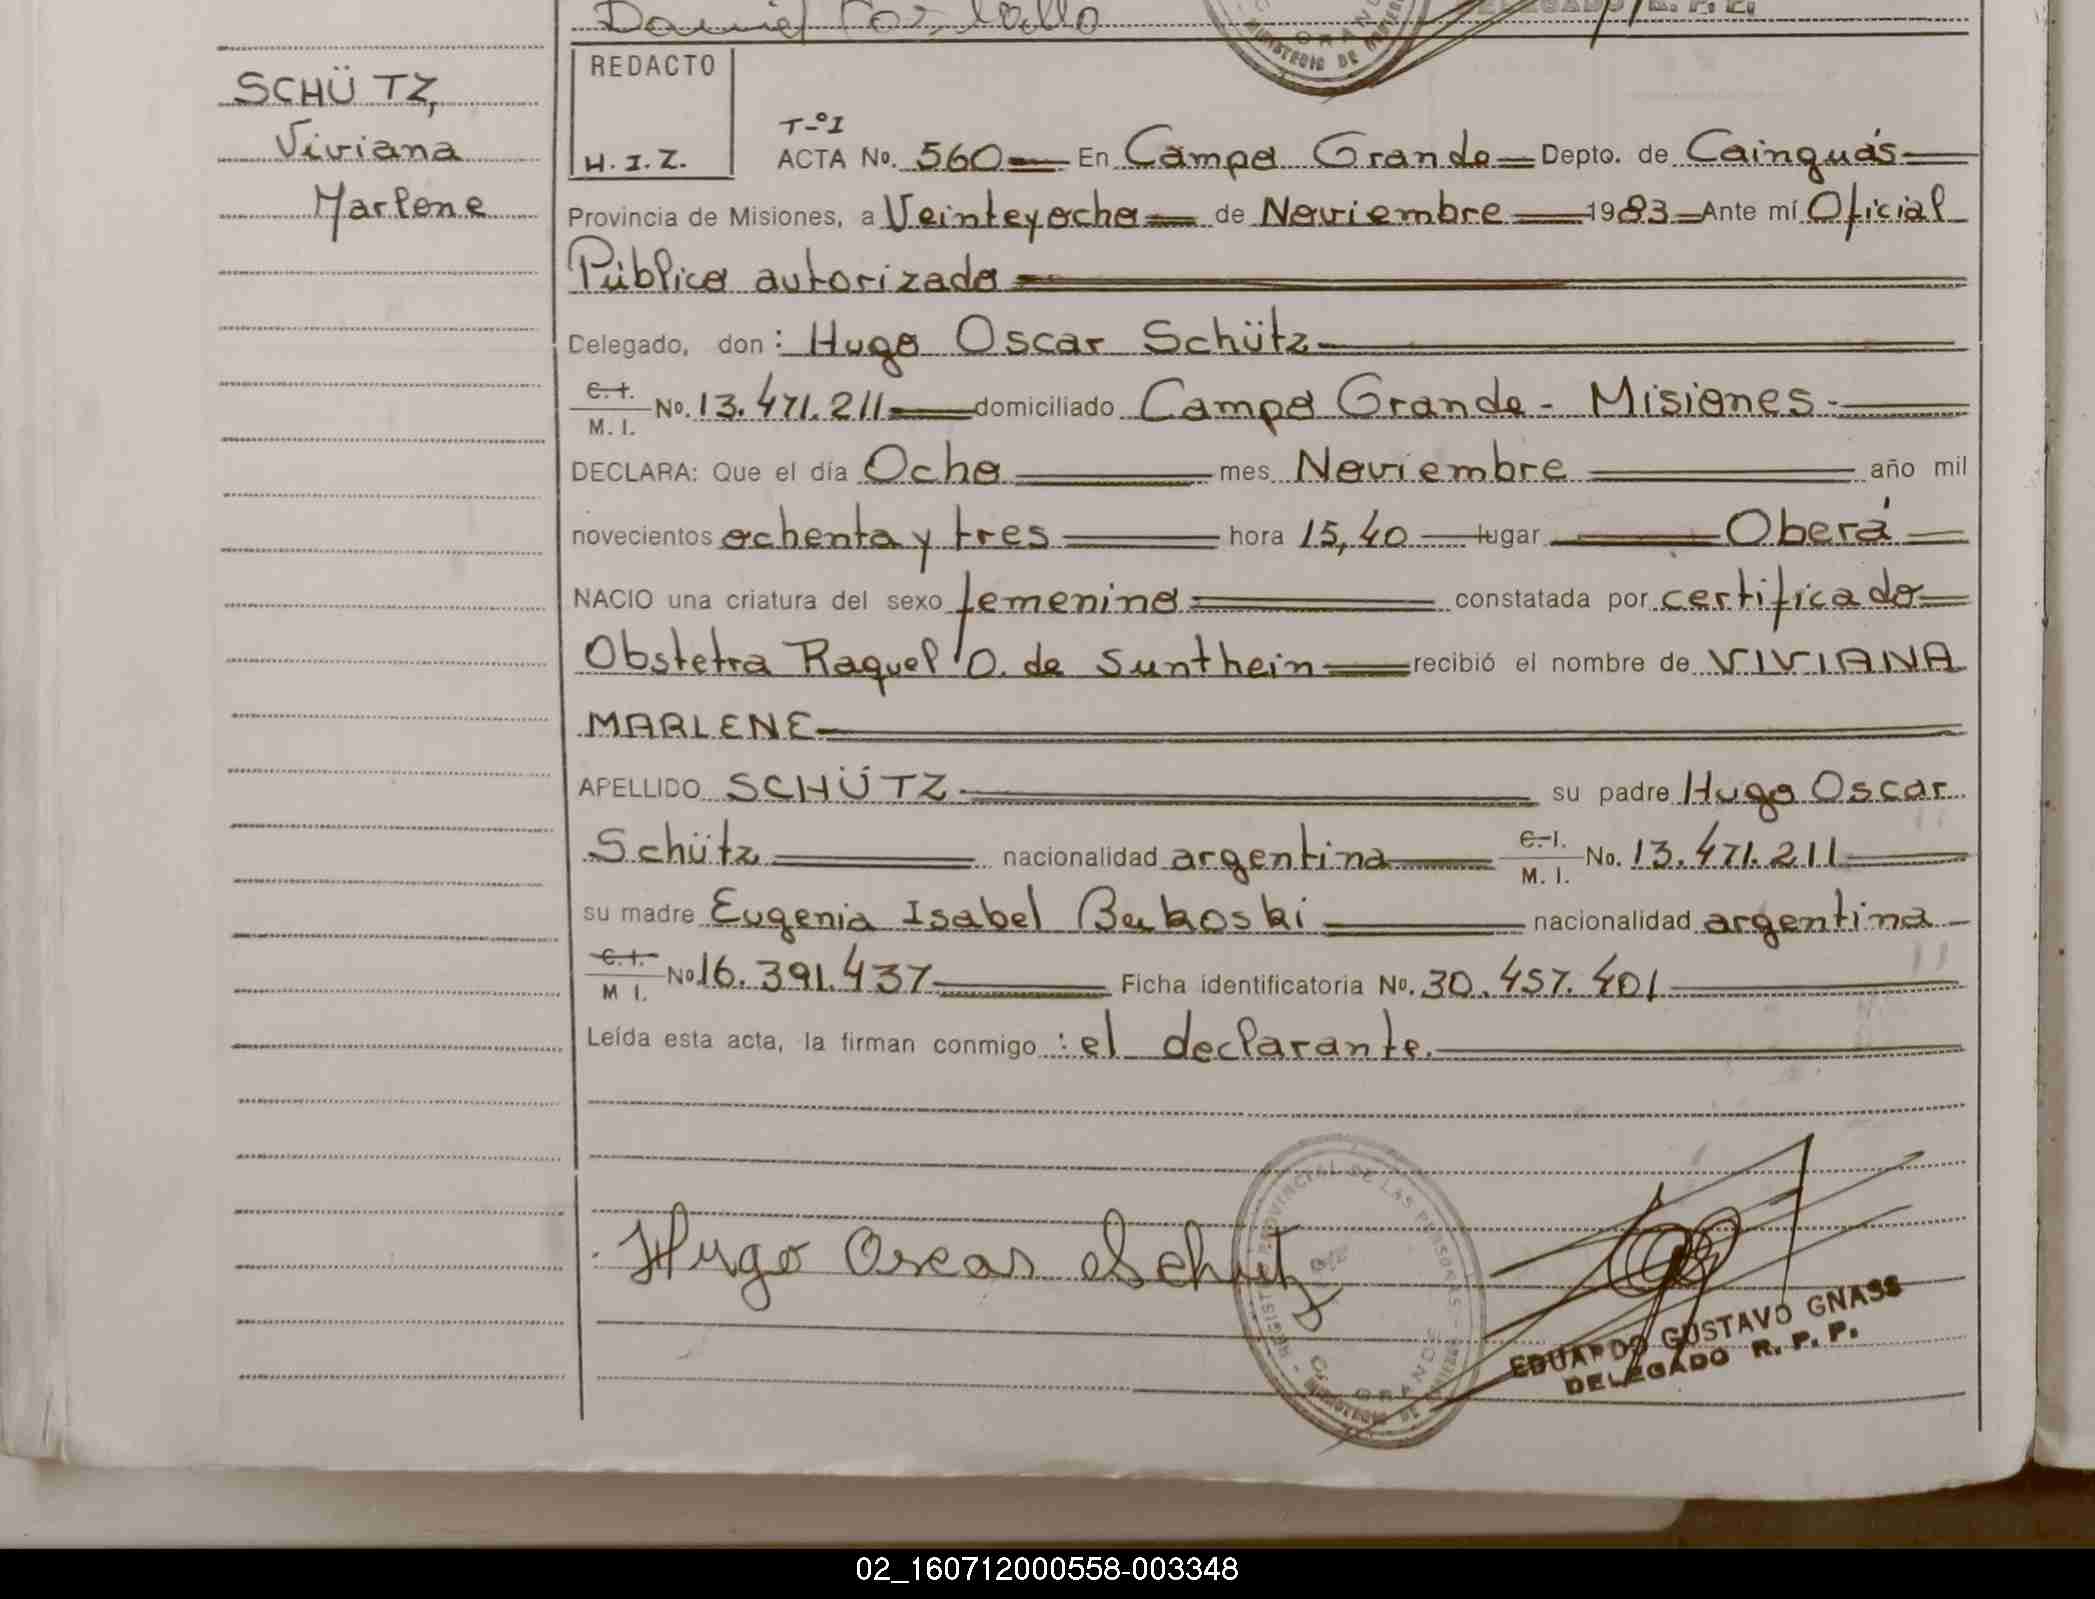 Daniel
DELEGADO R. P. P.
GRAN
MINISTERIO DE
SCHÜTZ,
Viviana
Marlene
REDACTO
H.I.Z.
T-º I
ACTA No. 560 En Campo Grande Depto. de Cainguás
Provincia de Misiones, a Veinteyocho de Noviembre 1983 Ante mí Oficial
Público autorizado
Delegado, don: Hugo Oscar Schütz
C. I.
M. I.
No. 13.471.211 domiciliado Campo Grande - Misiones -
DECLARA: Que el día Ocho mes Noviembre año mil
novecientos ochenta y tres hora 15,40 lugar Oberá
NACIO una criatura del sexo femenino constatada por certificado
Obstetra Raquel O. de Sunthein recibió el nombre de VIVIANA
MARLENE
APELLIDO SCHÜTZ su padre Hugo Oscar
Schütz nacionalidad argentina C. I. M. I. No. 13.471.211
su madre Eugenia Isabel Bukoski nacionalidad argentina
C. I.
M I.
No 16.391.437 Ficha identificatoria No. 30.457.401
Leída esta acta, la firman conmigo : el declarante.
Hugo Oscar Schütz
REGISTRO PROVINCIAL DE LAS PERSONAS
C. GRANDE
MINISTERIO DE GOBIERNO
EDUARDO GUSTAVO GNASS
DELEGADO R. P. P.
02_160712000558-003348